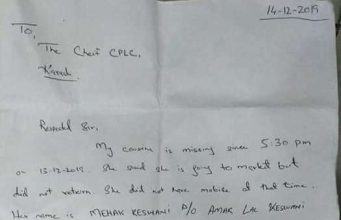 14-12-2019
To,
The Chief CPLC,
Karachi
Respected Sir,
My cousin is missing since 5:30 pm
on 13-12-2019. She said she is going to market but
did not return. She did not have mobile at that time.
Her name is MEHAK KESWANI D/O AMAR LAL KESWANI